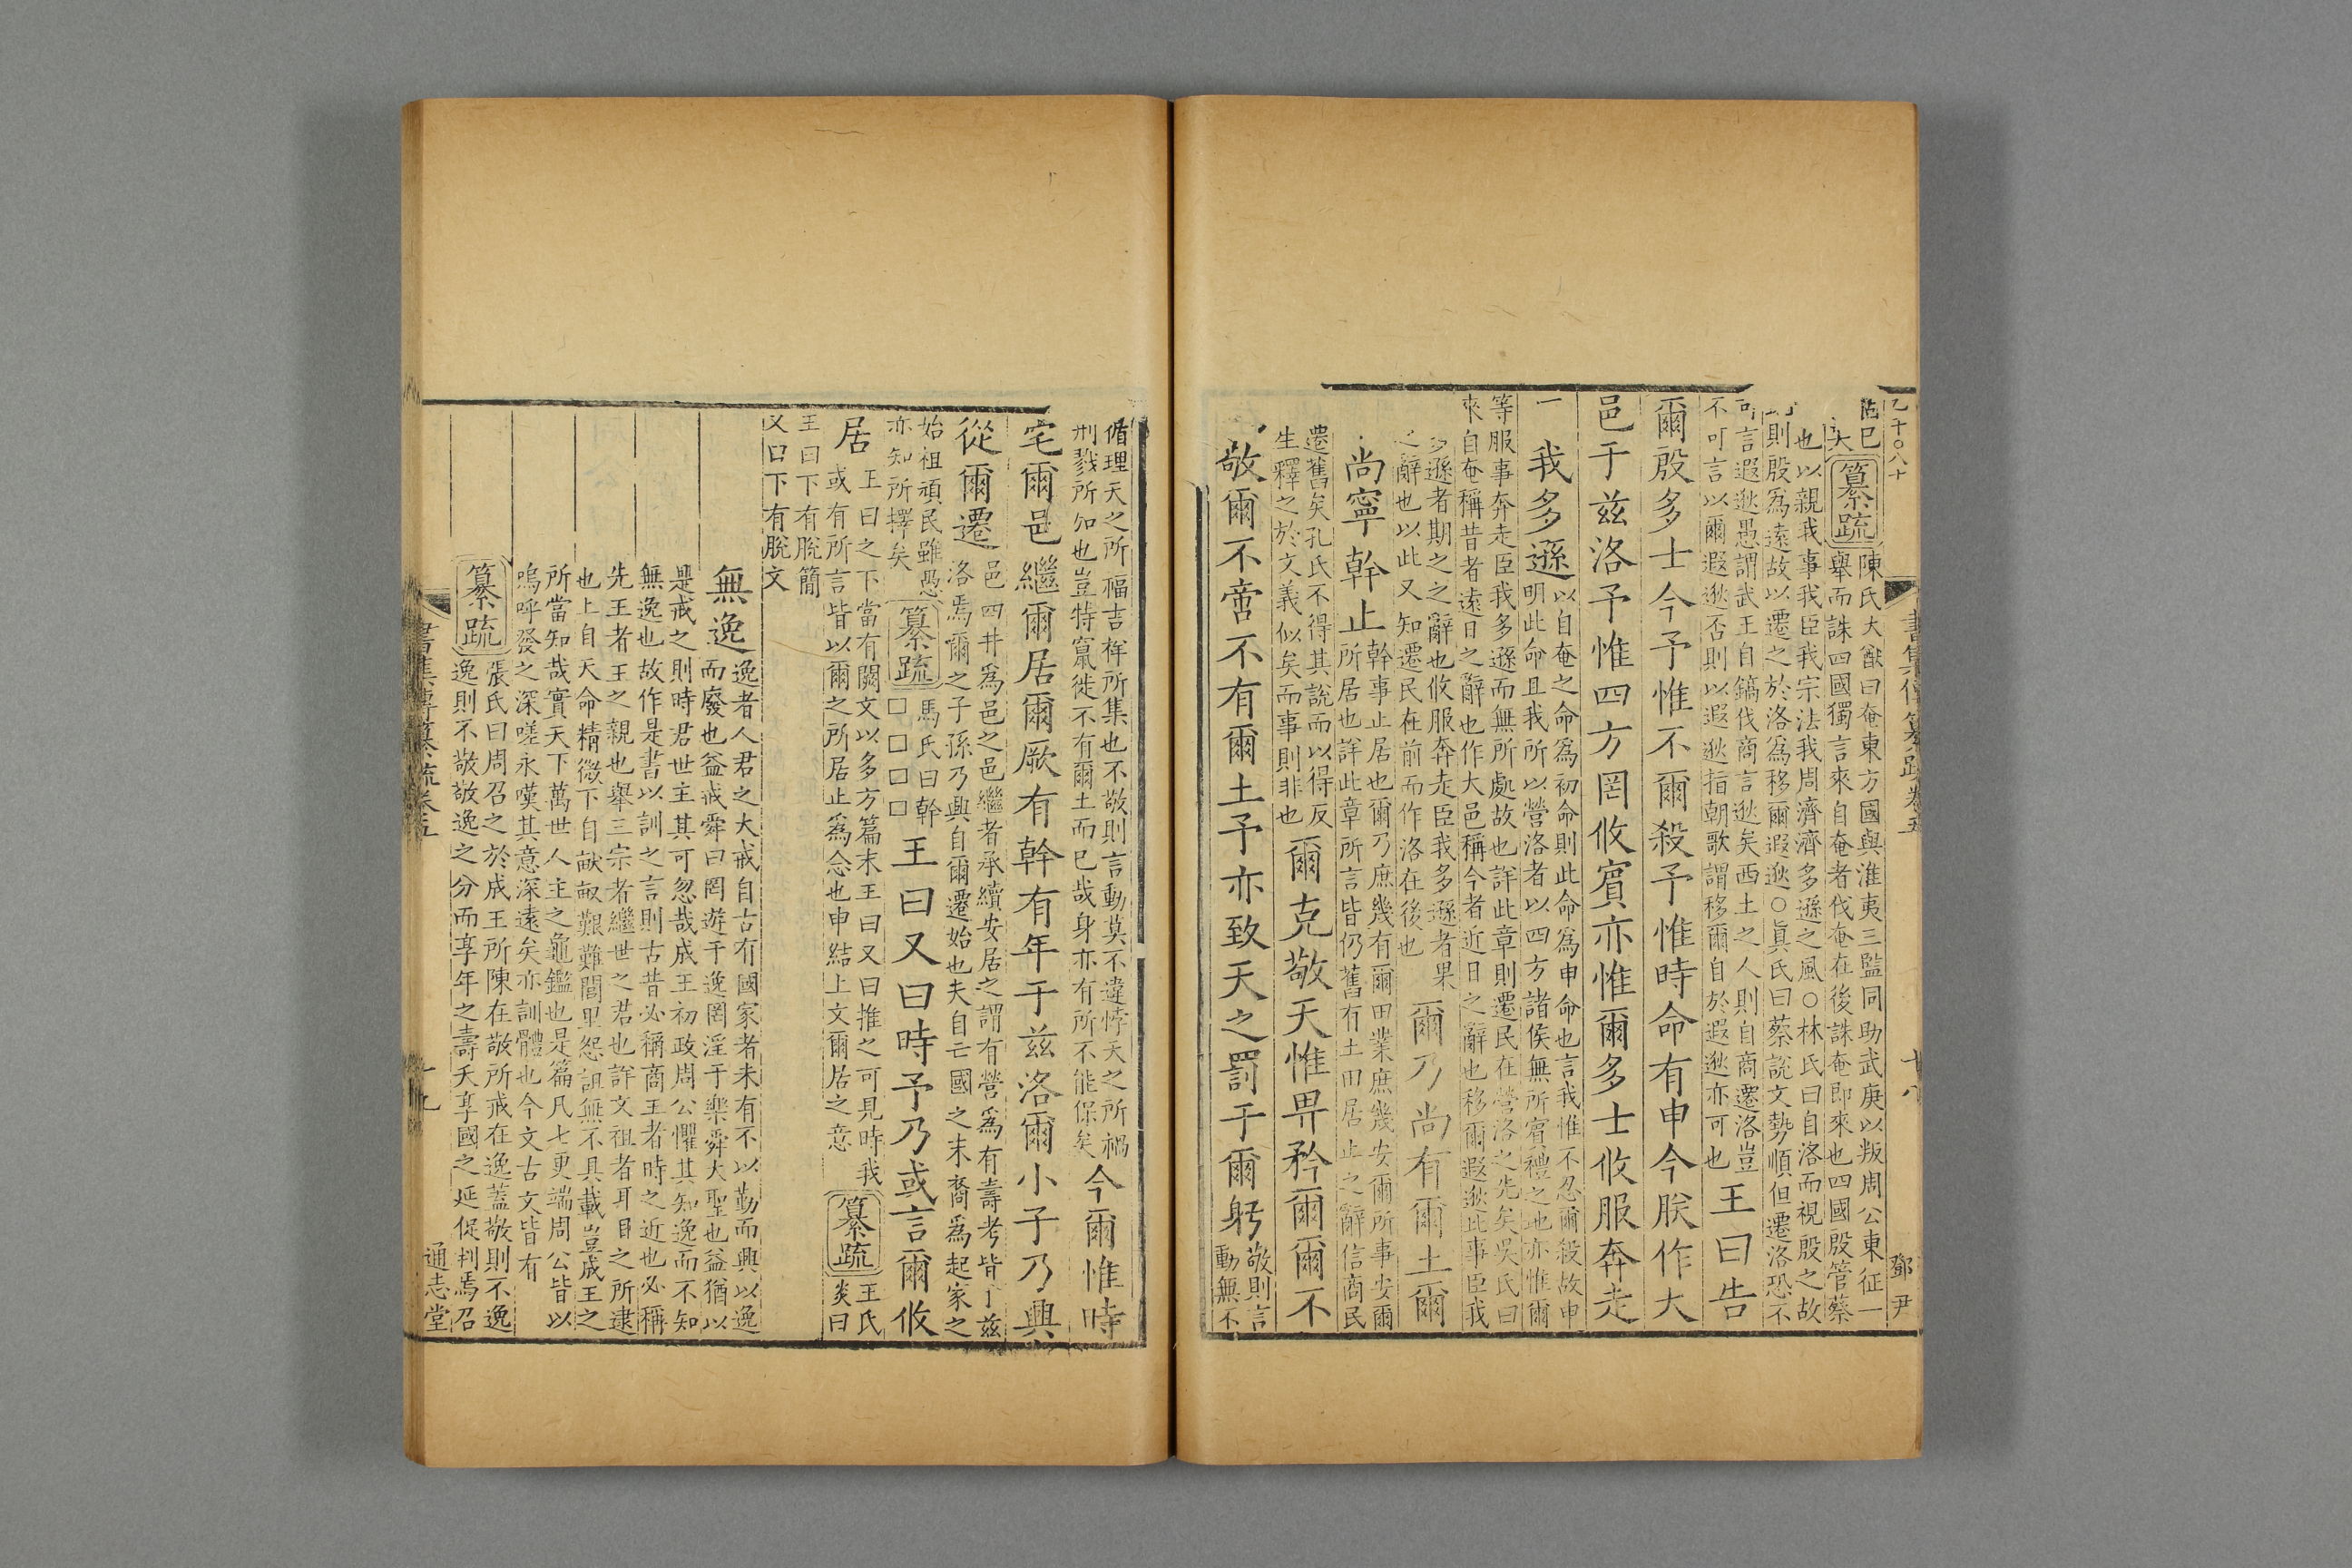 書集傳纂疏卷五 十八 鄧尹
陳氏大猷曰奄東方國與淮夷三監同助武庚以叛周公東征一
纂疏
舉而誅四國獨言來自奄者伐奄在後誅奄即來也四國殷管蔡
也以親我事我臣我宗法我周濟濟多遜之風○林氏曰自洛而視殷之故
則殷爲遠故以遷之於洛爲移爾遐逖○真氏曰蔡說文勢順但遷洛恐不
可言遐逖愚謂武王自鎬伐商言逖矣西土之人則自商遷洛豈
不可言以爾遐逖否則以遐逖指朝歌謂移爾自於遐逖亦可也
王曰告
爾殷多士今予惟不爾殺予惟時命有申今朕作大
邑于茲洛予惟四方罔攸賓亦惟爾多士攸服奔走
我多遜
以自奄之命爲初命則此命爲申命也言我惟不忍爾殺故申
明此命且我所以營洛者以四方諸侯無所賓禮之地亦惟爾
等服事奔走臣我多遜而無所處故也詳此章則遷民在營洛之先矣吳氏曰
來自奄稱昔者遠日之辭也作大邑稱今者近日之辭也移爾遐逖比事臣我
多遜者期之之辭也攸服奔走臣我多遜者果
之辭也以此又知遷民在前而作洛在後也
爾乃尚有爾土爾
尚寧幹止
幹事止居也爾乃庶幾有爾田業庶幾安爾所事安爾
所居也詳此章所言皆仍舊有土田居止之辭信商民
遷舊矣孔氏不得其說而以得反
生釋之於文義似矣而事則非也
爾克敬天惟畀矜爾爾不
敬爾不啻不有爾土予亦致天之罰于爾躬
敬則言
動無不
循理天之所福吉祥所集也不敬則言動莫不違悖天之所禍
刑戮所加也豈特竄徙不有爾土而已哉身亦有所不能保矣
今爾惟時
宅爾邑繼爾居爾厥有幹有年于茲洛爾小子乃興
從爾遷
邑四井爲邑之邑繼者承續安居之謂有營爲有壽考皆于茲
洛焉爾之子孫乃興自爾遷始也夫自亡國之末裔爲起家之
始祖頑民雖愚
亦知所擇矣
纂疏
馬氏曰幹
□□□□
王曰又曰時予乃或言爾攸
居
王曰之下當有闕文以多方篇末王曰又曰推之可見時我
或有所言皆以爾之所居止爲念也申結上文爾居之意
纂疏
王氏
炎曰
王曰下有脫簡
又曰下有脫文
無逸
逸者人君之大戒自古有國家者未有不以勤而興以逸
而廢也益戒舜曰罔遊于逸罔淫于樂舜大聖也益猶以
是戒之則時君世主其可忽哉成王初政周公懼其知逸而不知
無逸也故作是書以訓之言則古昔必稱商王者時之近也必稱
先王者王之親也舉三宗者繼世之君也詳文祖者耳目之所逮
也上自天命精微下自畎畝艱難閭里怨詛無不具載豈成王之
所當知哉實天下萬世人主之龜鑑也是篇凡七更端周公皆以
嗚呼發之深嗟永嘆其意深遠矣亦訓體也今文古文皆有
纂疏
張氏曰周召之於成王所陳在敬所戒在逸蓋敬則不逸
逸則不敬敬逸之分而享年之壽夭享國之延促判焉召
書集傳纂疏卷五 十九 通志堂